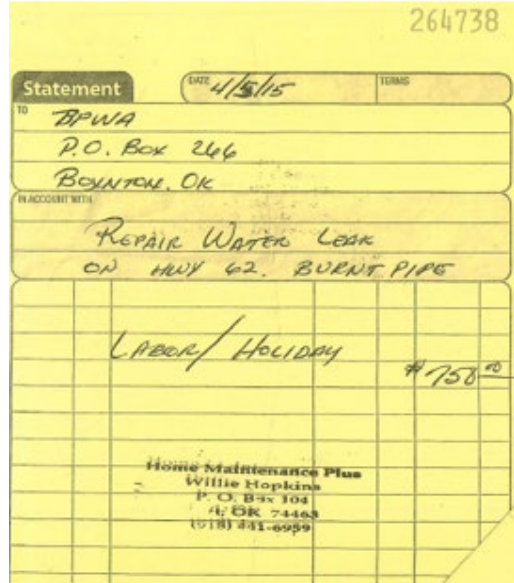 264738
Statement
DATE 4/5/15
TERMS
TO BPWA
P.O. Box 266
BOYNTON, OK
IN ACCOUNT WITH
REPAIR WATER LEAK
ON HWY 62. BURNT PIPE
LABOR/ HOLIDAY
$750.00
Home Maintenance Plus
Willie Hopkins
P. O. Box 104
OK 74463
(918) 441-6959